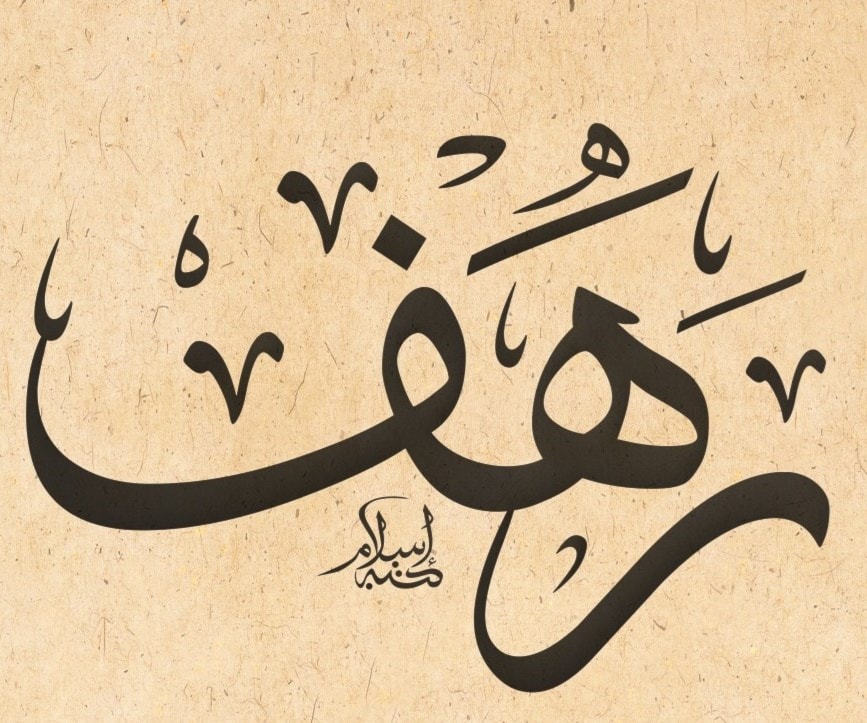 رَهَف
إسلام
كتبه